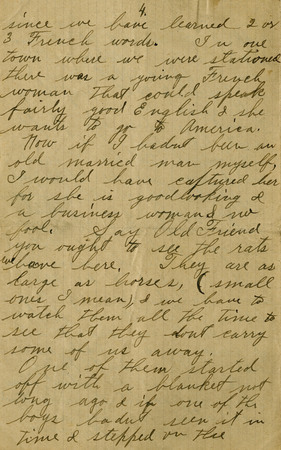 4.
since we have learned 2 or
3 French words. In one
town where we were stationed
there was a young French
woman that could speak
fairly good English & she
wants to go to America.
Now if I hadnt been an
old married man myself,
I would have captured her
for she is goodlooking &
a business woman & no
fool. Say Old Friend
you ought to see the rats
we have here. They are as
large as horses, (small
ones I mean), & we have to
watch them all the time to
see that they dont carry
some of us away.
One of them started
off with a blanket not
long ago & if one of the
boys hadnt seen it in
time & stepped on the